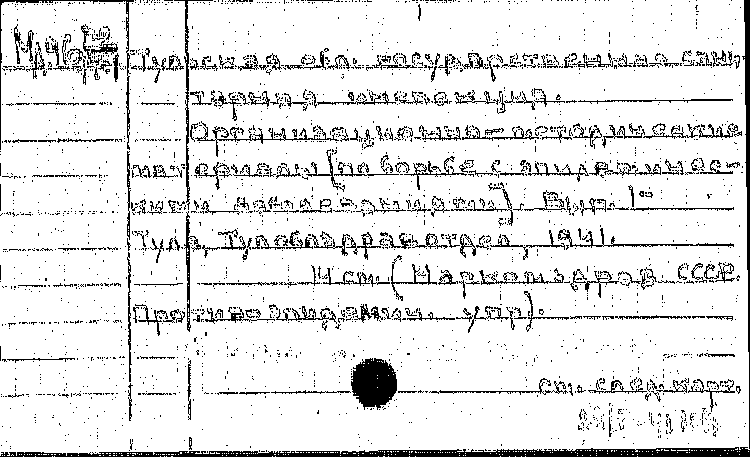 Тульская обл. государственная сани-
тарная инспекция.
Организационно-методические
материалы [по борьбе с эпидемичес-
кими заболеваниями]. Вып. 1-
Тула, Тулоблздравотдел, 1941.
14 см. (Наркомздрав СССР.
Противоэпидемич. упр).
см. след. карт.